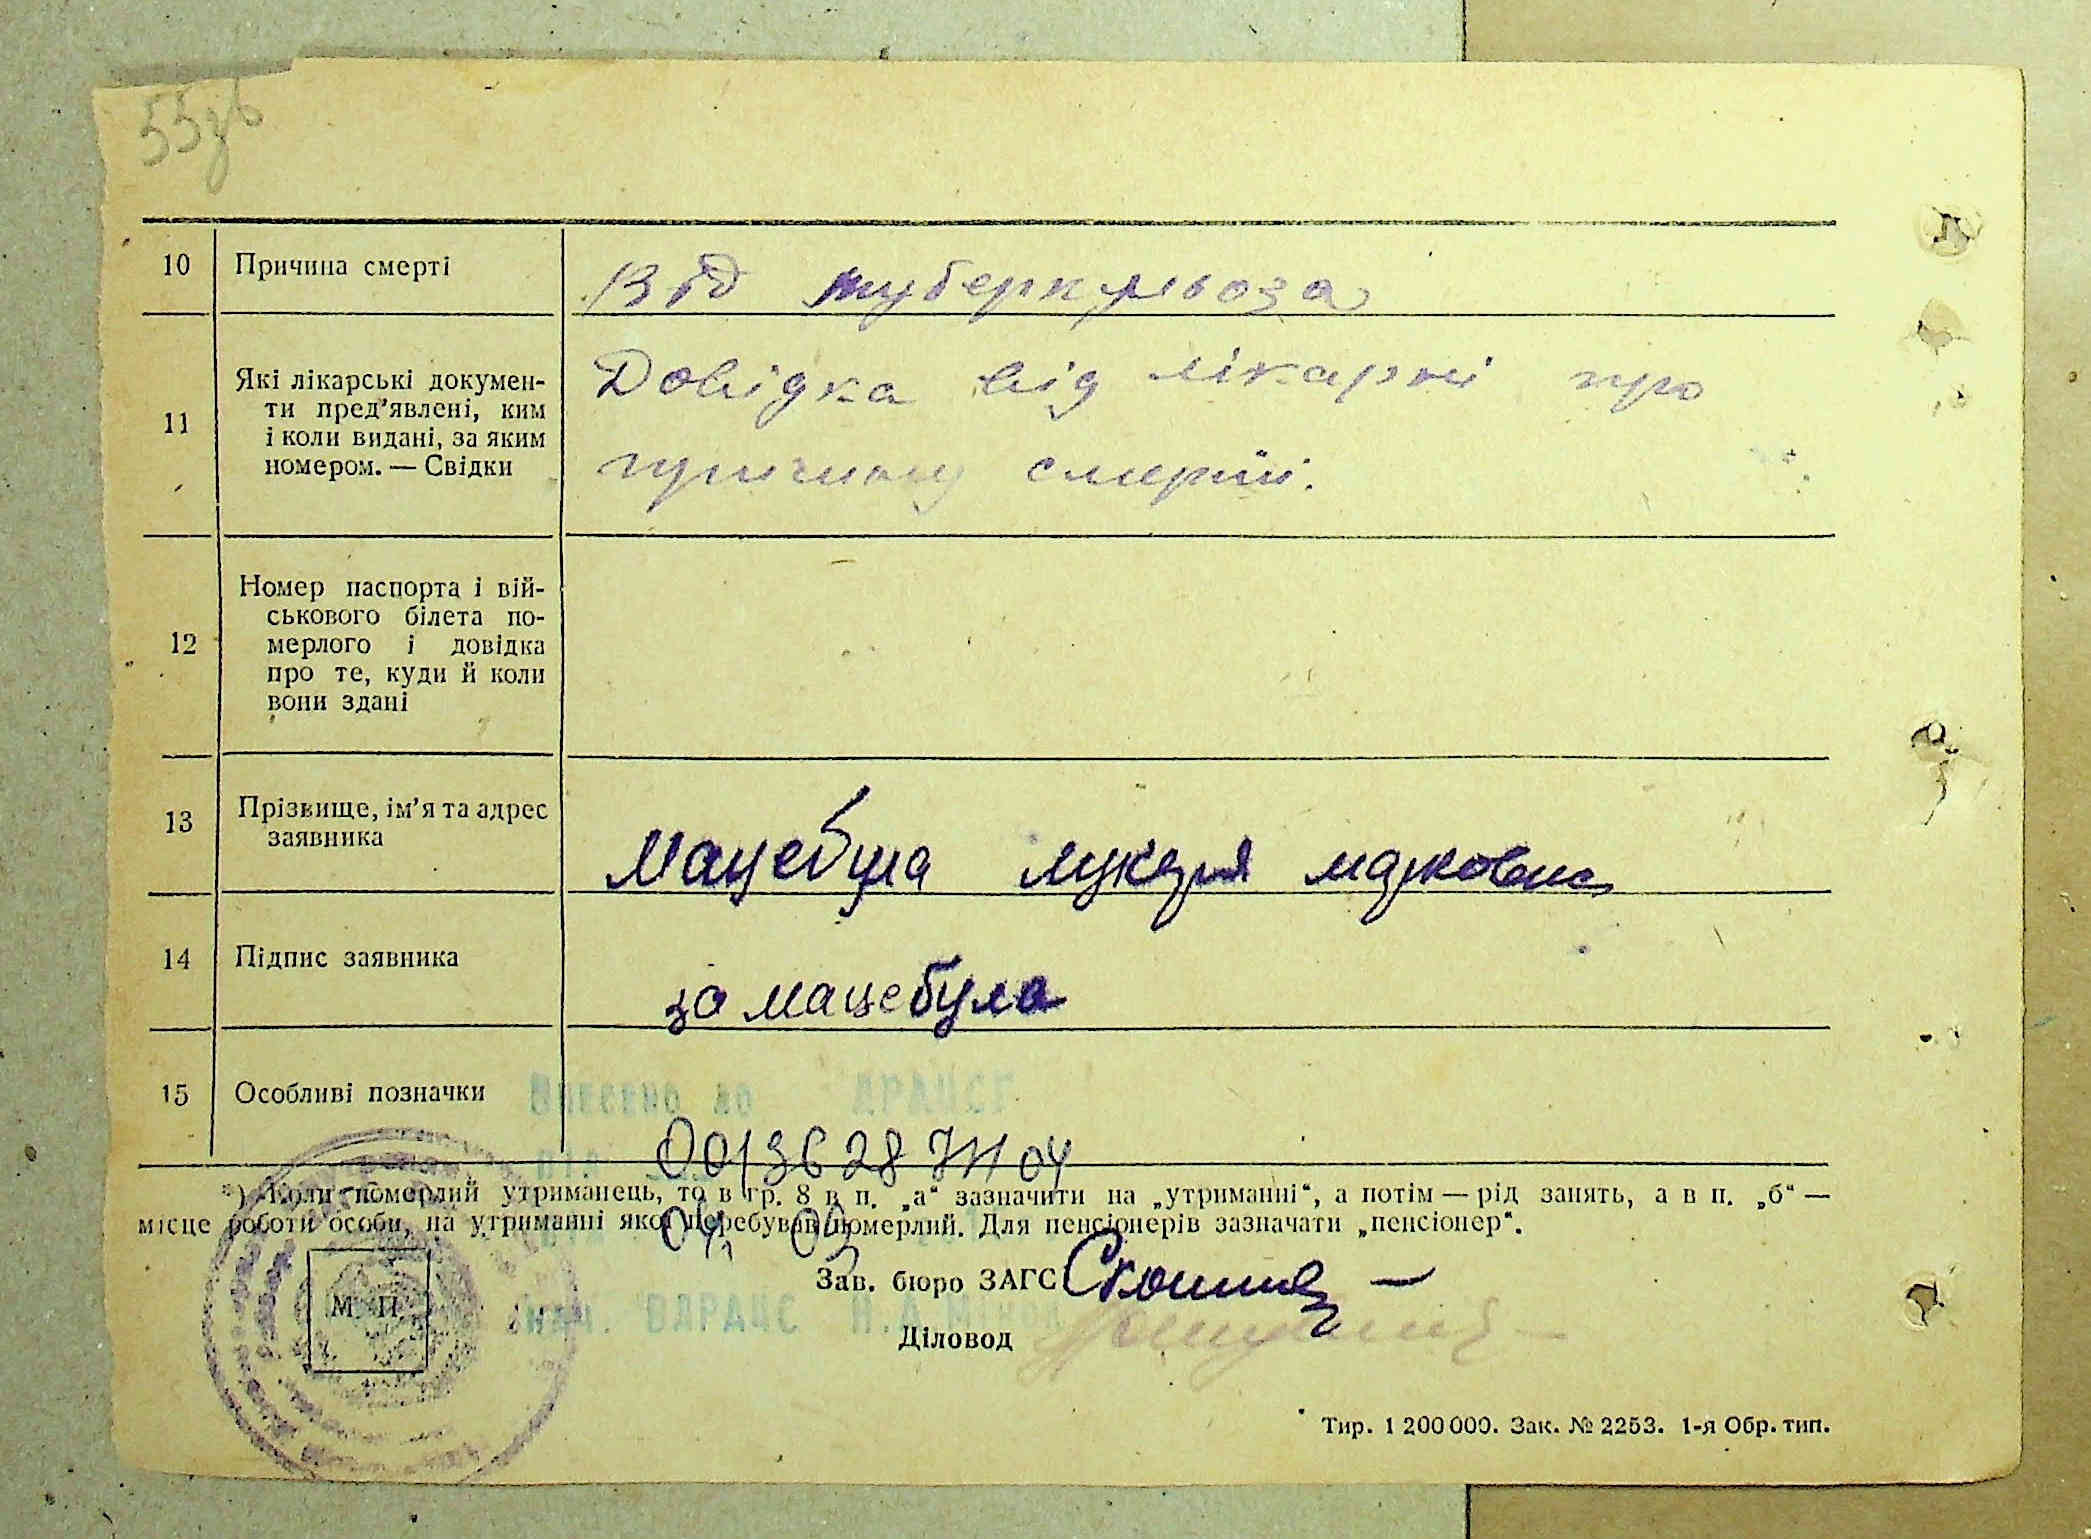 55зв
10 Причина смерті Від туберкульоза
11 Які лікарські докумен-
ти пред’явлені, ким
і коли видані, за яким
номером. — Свідки
Довідка від лікарні про
причину смерті.
12 Номер паспорта і вій-
ськового білета по-
мерлого і довідка
про те, куди й коли
вони здані
13 Прізвище, ім’я та адрес
заявника
Мацебула лукеря марковна
14 Підпис заявника за мацебула
15 Особливі позначки
Внесено до ДРАЦСГ
00136287
*) Коли померлий утриманець, то в гр. 8 в п. „а“ зазначити на „утриманні“, а потім — рід занять, а в п. „б“ —
місце роботи особи, на утриманні якої перебував померлий. Для пенсіонерів зазначати „пенсіонер“.
М П
Зав. бюро ЗАГС
ВДРАЦС
Діловод
Тир. 1 200 000. Зак. № 2253. 1-я Обр. тип.